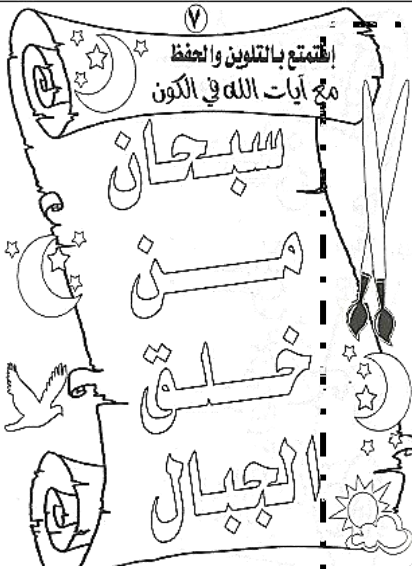 ٧
إستمتع بالتلوين والحفظ
مع آيات الله في الكون
سبحان
من
خلق
الجبال